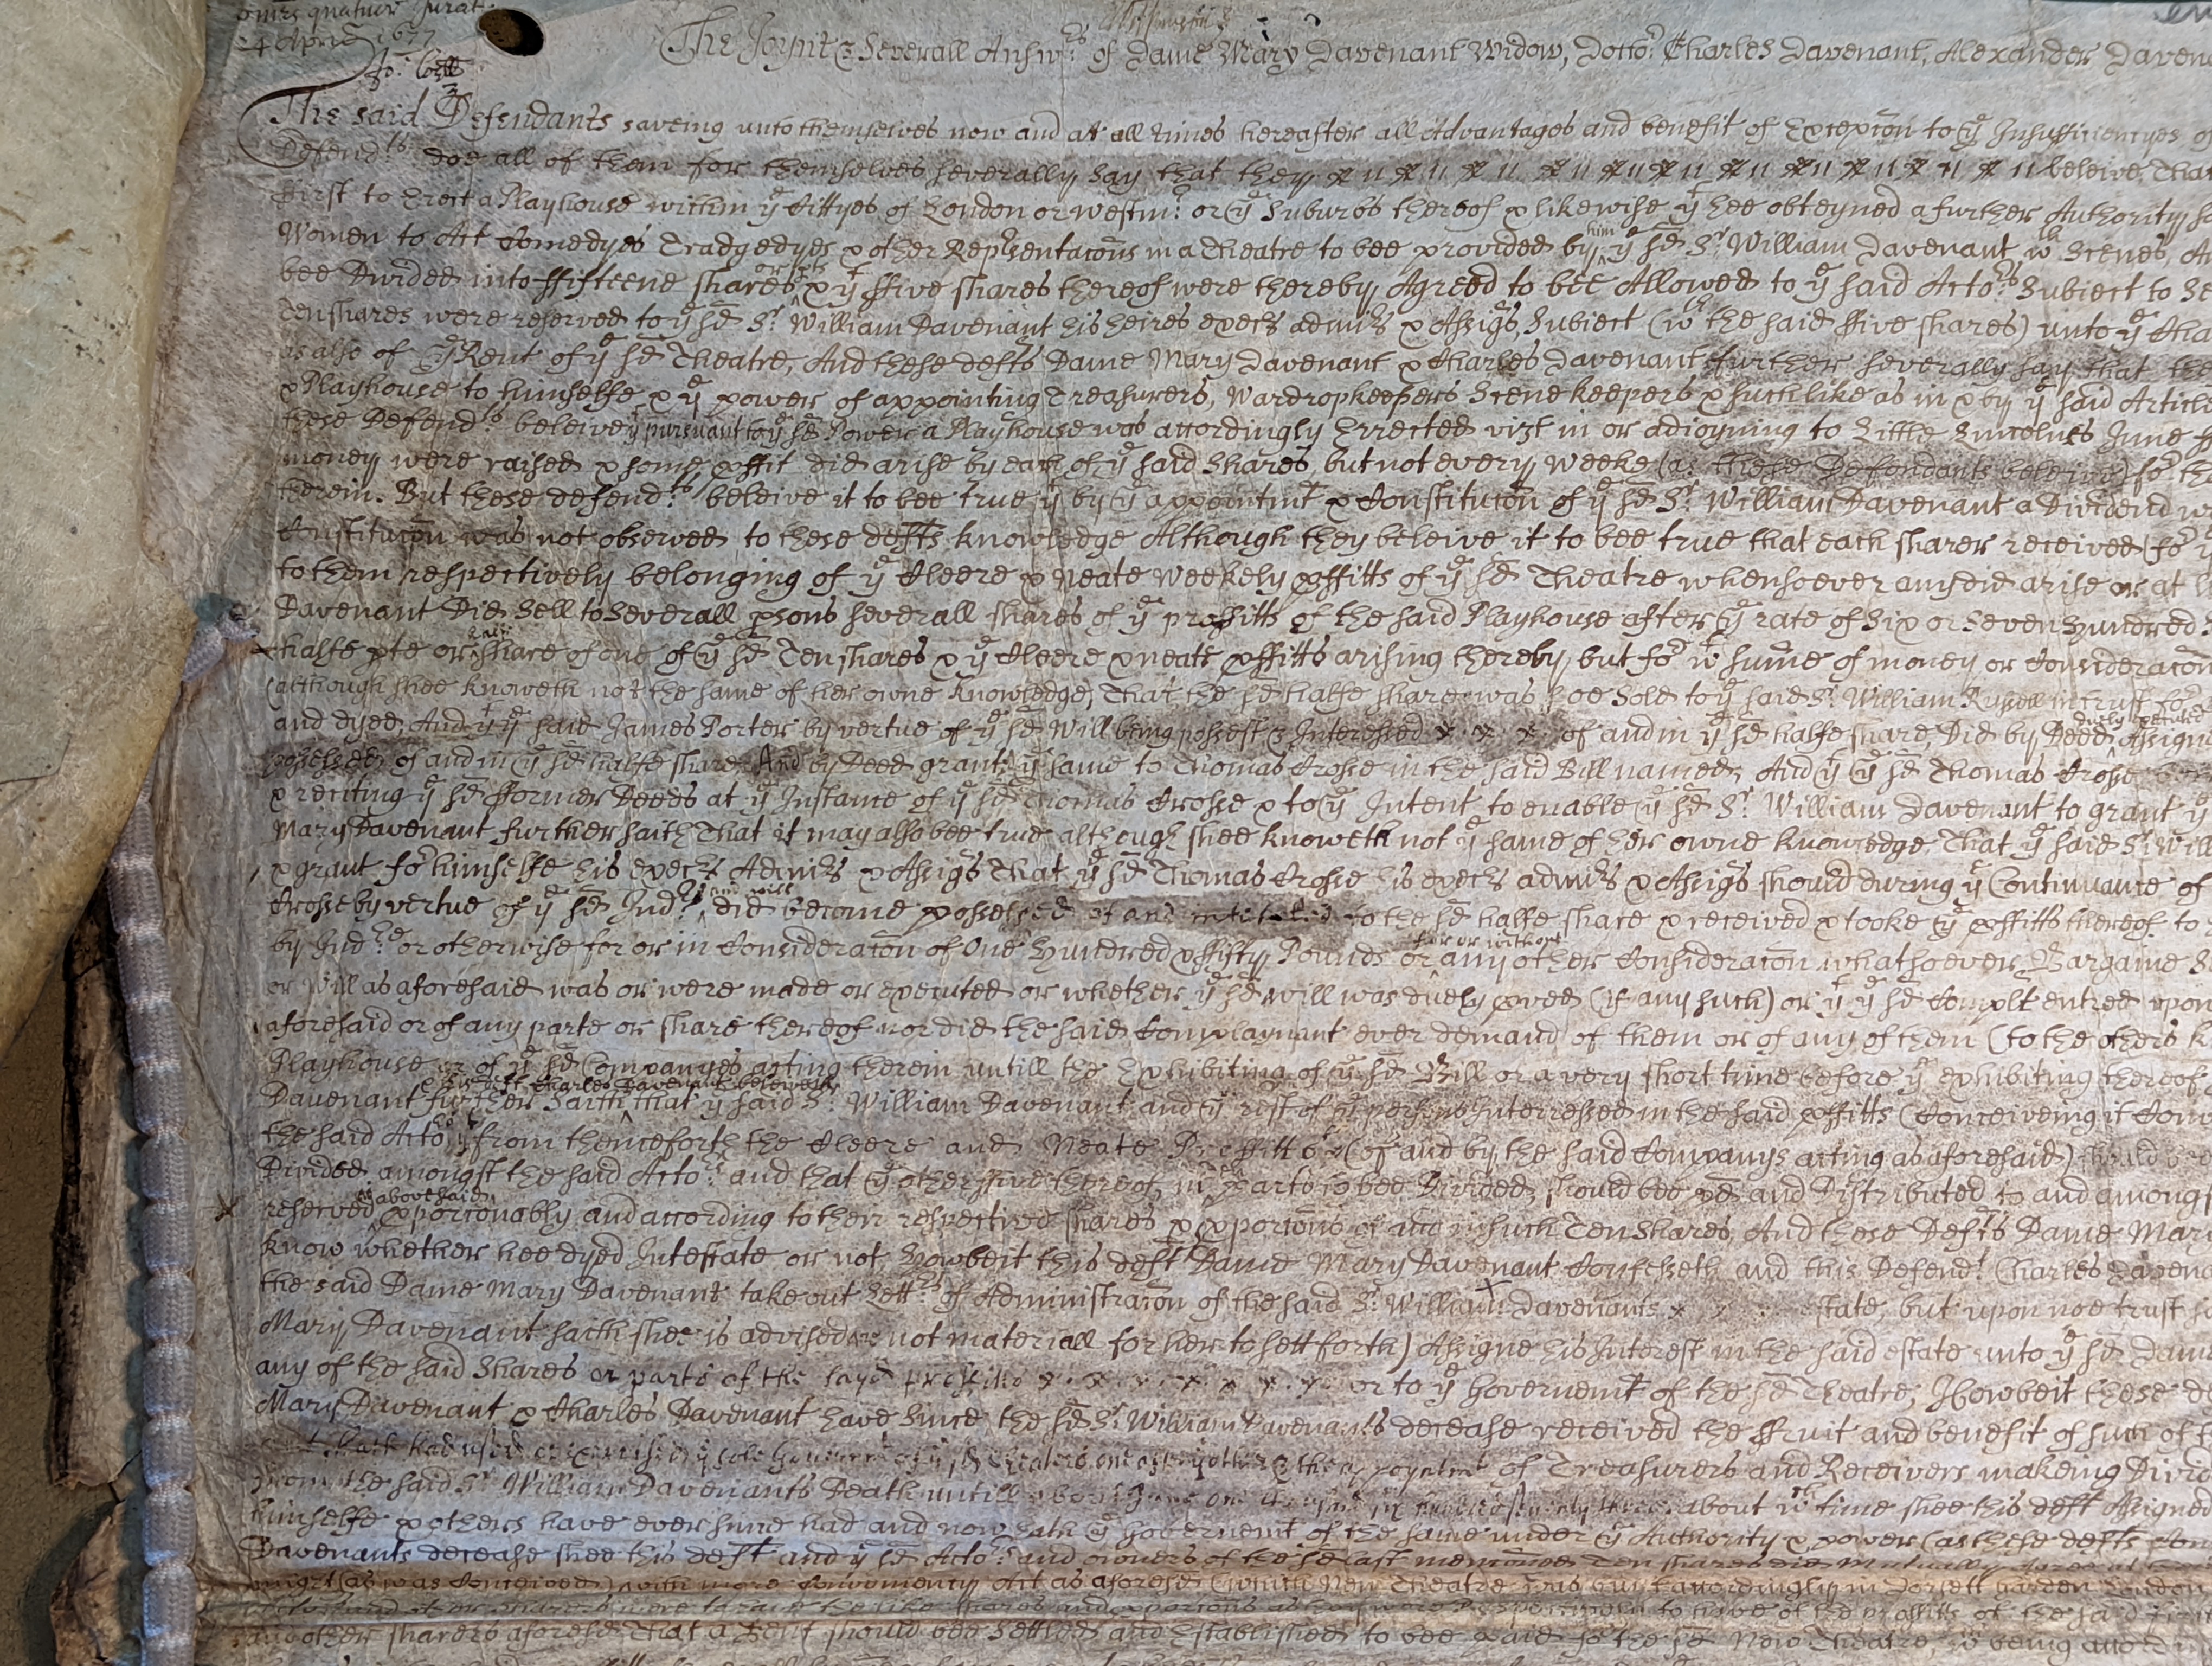 quatuor Jurat
4 April 1677
The Joynt & Severall Answrs of Dame Mary Davenant Widow, Doctor Charles Davenant, Alexander Daven
The said Defendants saveing unto themselves now and att all times hereafter all Advantages and benefit of Excepcon to ye Insufficiencyes of
Defendts doe all of them for themselves severally say that they beleive That
First to Erect a Playhouse within ye Cittyes of London or Westmr or ye Suburbs thereof & likewise yt hee obteyned a further Authority
Women to Act Comedyes Tradgedyes & other Representacons in a Theatre to bee provided by him ye sd Sr William Davenant wth Scenes,
bee Divided into ffifteene shares & yt ffive shares thereof were thereby Agreed to bee Allowed to ye said Actors Subject to
Ten shares were reserved to ye sd Sr William Davenant his heires execrs admrs & Assigs, Subject (wth the said ffive shares) unto ye
as also of ye Rent of ye sd Theatre, And these defts Dame Mary Davenant & Charles Davenant further severally say that the
& Playhouse to himselfe & ye power of appointing Treasurers, Wardropkeepers Scenekeepers & such like as in & by ye said Article
these Defendts beleive yt pursuant to ye sd Power a Playhouse was accordingly Errected vizt in or adioyning to Little Lincolnes Inne
money were raised & some proffit did arise by each of ye said Shares, but not every Weeke (as these Defendants beleive) for
therein. But these defendts beleive it to bee true yt by ye appointmt & Constitucon of ye sd Sr William Davenant a Dividend
Constitucon was not observed to these defts knowledge Although they beleive it to bee true that each sharer received for
to them respectively belonging of ye Cleere & Neate Weekely proffitts of ye sd Theatre whensoever any did arise or at
Davenant Did Sell to Severall psons severall shares of ye proffitts of the said Playhouse after ye rate of Six or Seven Hundred
halfe pte or halfe share of one of ye sd Ten shares & ye Cleere & neate proffitts arising thereby, but for wt sume of money or Consideracon
(although shee knoweth not the same of her owne knowledge) That the sd halfe share was soe Sold to ye said Sr William Russell in trust for
and dyed, And yt ye said James Porter by vertue of ye sd Will being possest & Interessed of and in ye sd halfe share, Did by Deed duely executed Assigne
possessed of and in ye sd halfe share And by Deed grant ye same to Thomas Crosse in the said Bill named, And yt ye sd Thomas Crosse
& reciting ye sd fformer Deeds at ye Instance of ye sd Thomas Crosse & to ye Intent to enable ye sd Sr William Davenant to grant
Mary Davenant further saith That it may also bee true although shee knoweth not ye same of her owne knowledge That ye said Sr Will
& grant for himselfe his execrs Admrs & Assigs That ye sd Thomas Crosse his execrs admrs & Assigs should during ye Continuance of
Crosse by vertue of ye sd Indre and will did become possessed of and intituled to the sd halfe share & received & tooke ye proffitts thereof to
by Indre or otherwise for or in Consideracon of One Hundred & ffifty Pounds or for or without any other Consideracon whatsoever, Bargaine
or Will as aforesaid was or were made or executed or whether ye sd will was duely proved (if any such) or yt ye sd Complt entred upon
aforesaid or of any parte or share thereof nor did the said Complaynant ever demand of them or of any of them (to the others
Playhouse or of ye sd Companyes acting therein untill the Exhibiting of ye sd Bill or a very short time before ye exhibiting thereof
Davenant further saith & this deft Charles Davenant beleiveth that ye said Sr William Davenant and ye rest of ye persons Interressed in the said proffitts (Conceiveing it
the said Actors yt from thenceforth the Cleere and Neate Proffitts (of and by the said Companys acting as aforesaid) should
Divided amongst the said Actors and that ye other ffive thereof, in parts to bee Divided, should bee pd and Distributed to and amongst
reserved as abovesaid proporconably and according to their respective shares & proporcons of and in such Ten Shares, And these Defts Dame Mary
know whether hee dyed Intestate or not, Howbeit this deft Dame Mary Davenant Confesseth and this Defendt Charles Davenant
the said Dame Mary Davenant take out Lettrs of Administracon of the said Sr William Davenants estate, but upon noe trust
Mary Davenant saith shee is advised not materiall for her to sett forth) Assigne his Interest in the said estate unto ye sd Dame
any of the said Shares or parts of the sayd proffitts or to ye Governemt of the sd Theatre, Howbeit these
Mary Davenant & Charles Davenant have since the sd Sr William Davenants decease received the ffruit and benefit of such of
hath had used or exercised ye sole Governmt of ye sd Theaters one after ye other & the appoyntmt of Treasurers and Receivers makeing
from the said Sr William Davenants Death untill about June one thousand six hundred seventy three about wch time shee this deft Assigned
himselfe & others have ever since had and now hath ye Governemt of the same under ye Authority & power (as these defts
Davenants decease shee this deft and ye sd Actors and owners of the sd last menconed Ten shares did Mutually Agree
might (as was Conceived) with more Conveniency Act as aforesd (which New Theatre was built accordingly in Dorsett Garden London
to have of the proffitts of the said
other sharers aforesd That a Rent should bee Settled and Established to bee paid for the sd New Theatre,